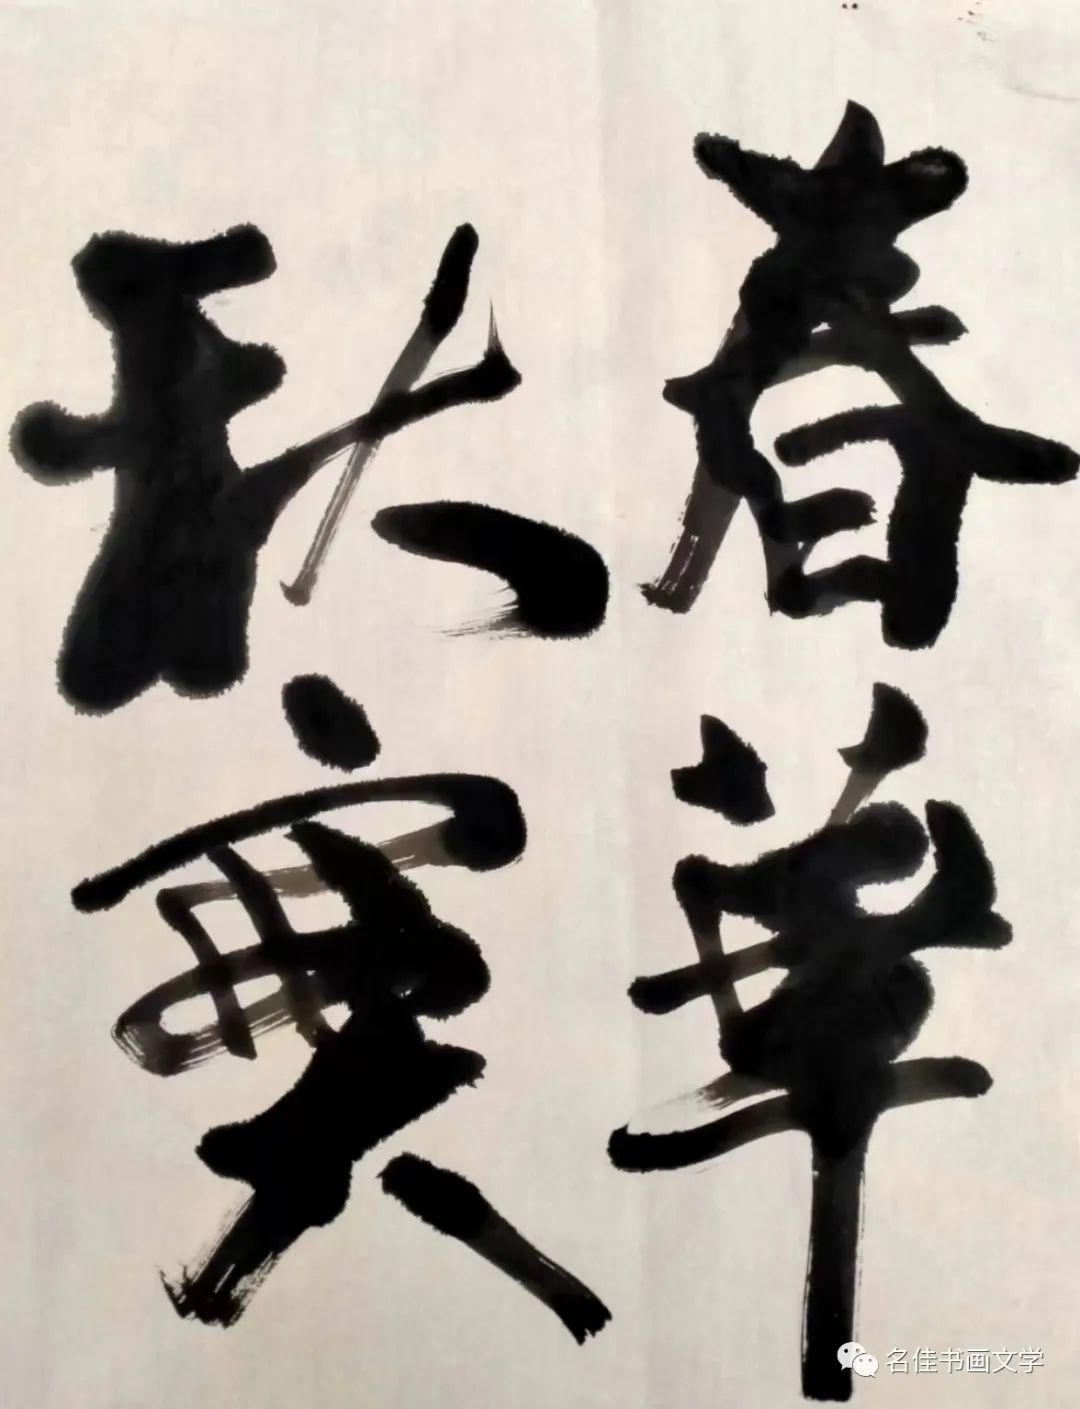 春華
秋實
名佳书画文学